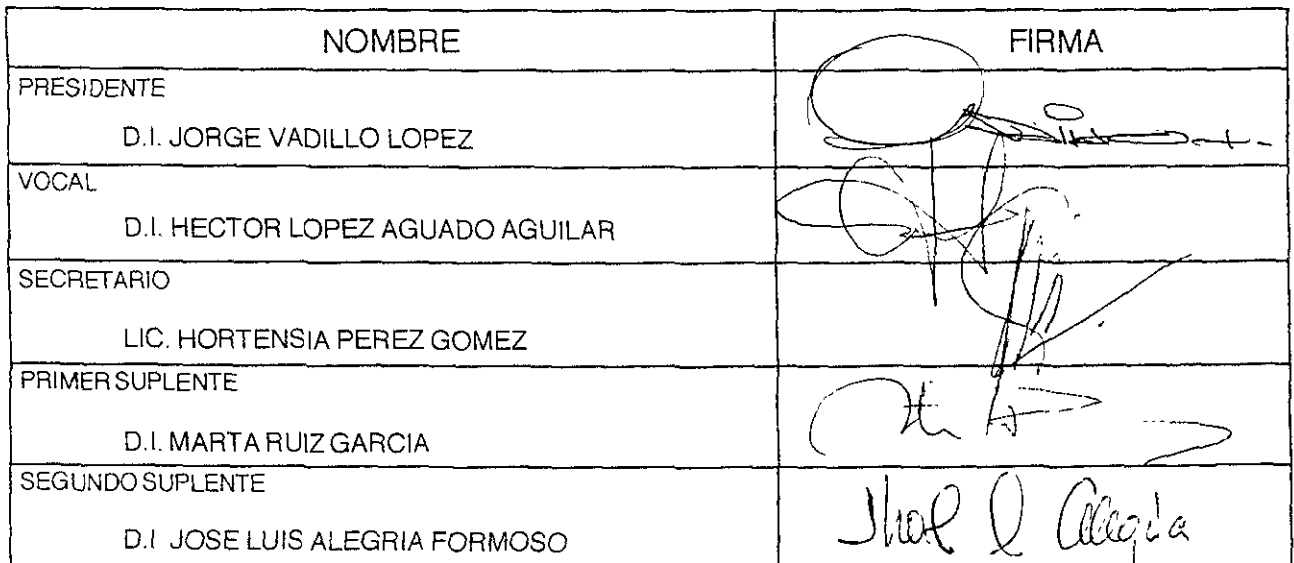 NOMBRE FIRMA
PRESIDENTE
D.I. JORGE VADILLO LOPEZ
VOCAL
D.I. HECTOR LOPEZ AGUADO AGUILAR
SECRETARIO
LIC. HORTENSIA PEREZ GOMEZ
PRIMER SUPLENTE
D.I. MARTA RUIZ GARCIA
SEGUNDO SUPLENTE
D.I JOSE LUIS ALEGRIA FORMOSO